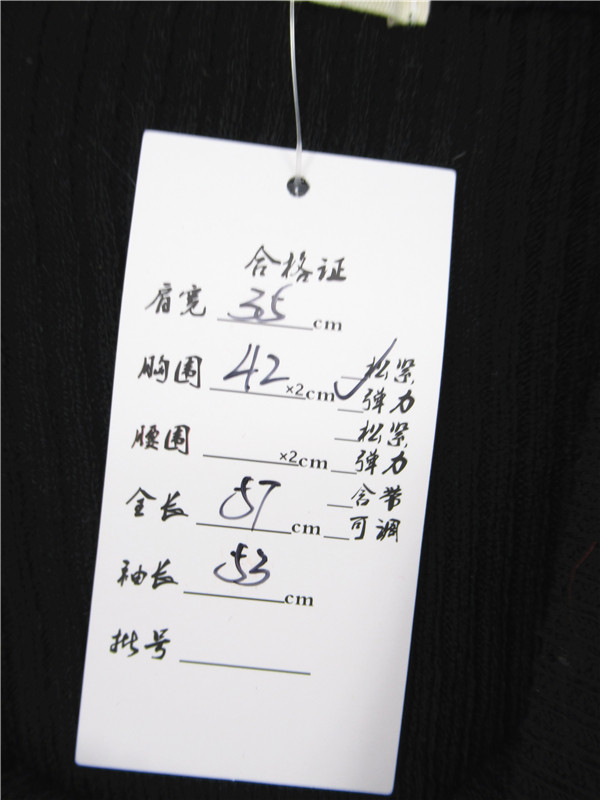 合格证
肩宽 35 cm
胸围 42 ×2cm 松紧
弹力
腰围 ×2cm 松紧
弹力
全长 57 cm 含带
可调
袖长 53 cm
批号